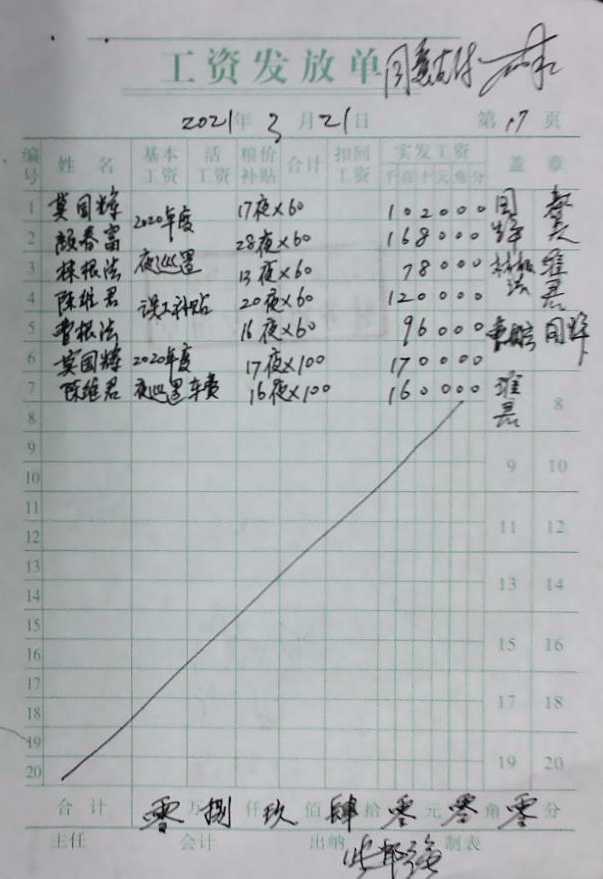 工资发放单 同意支付
2021年 3月21日 第17页
编号 姓名 基本工资 活工资 粮价补贴 合计 扣回工资 实发工资 盖章
千百十元角分
1 莫国辉 2020年度 17夜×60 102000 国
2 顾春富 28夜×60 168000
3 林根法 夜巡逻 13夜×60 78000 林根法
4 陈维君 误工补贴 20夜×60 120000 维君
5 曹根法 16夜×60 96000 国辉
6 莫国辉 2020年度 17夜×100 170000
7 陈维君 夜巡逻车费 16夜×100 160000 维君
8 8
9 9 10
10
11 11 12
12
13 13 14
14
15 15 16
16
17 17 18
18
19 19 20
20
合计 零万捌仟玖佰肆拾零元零角零分
主任 会计 出纳 制表